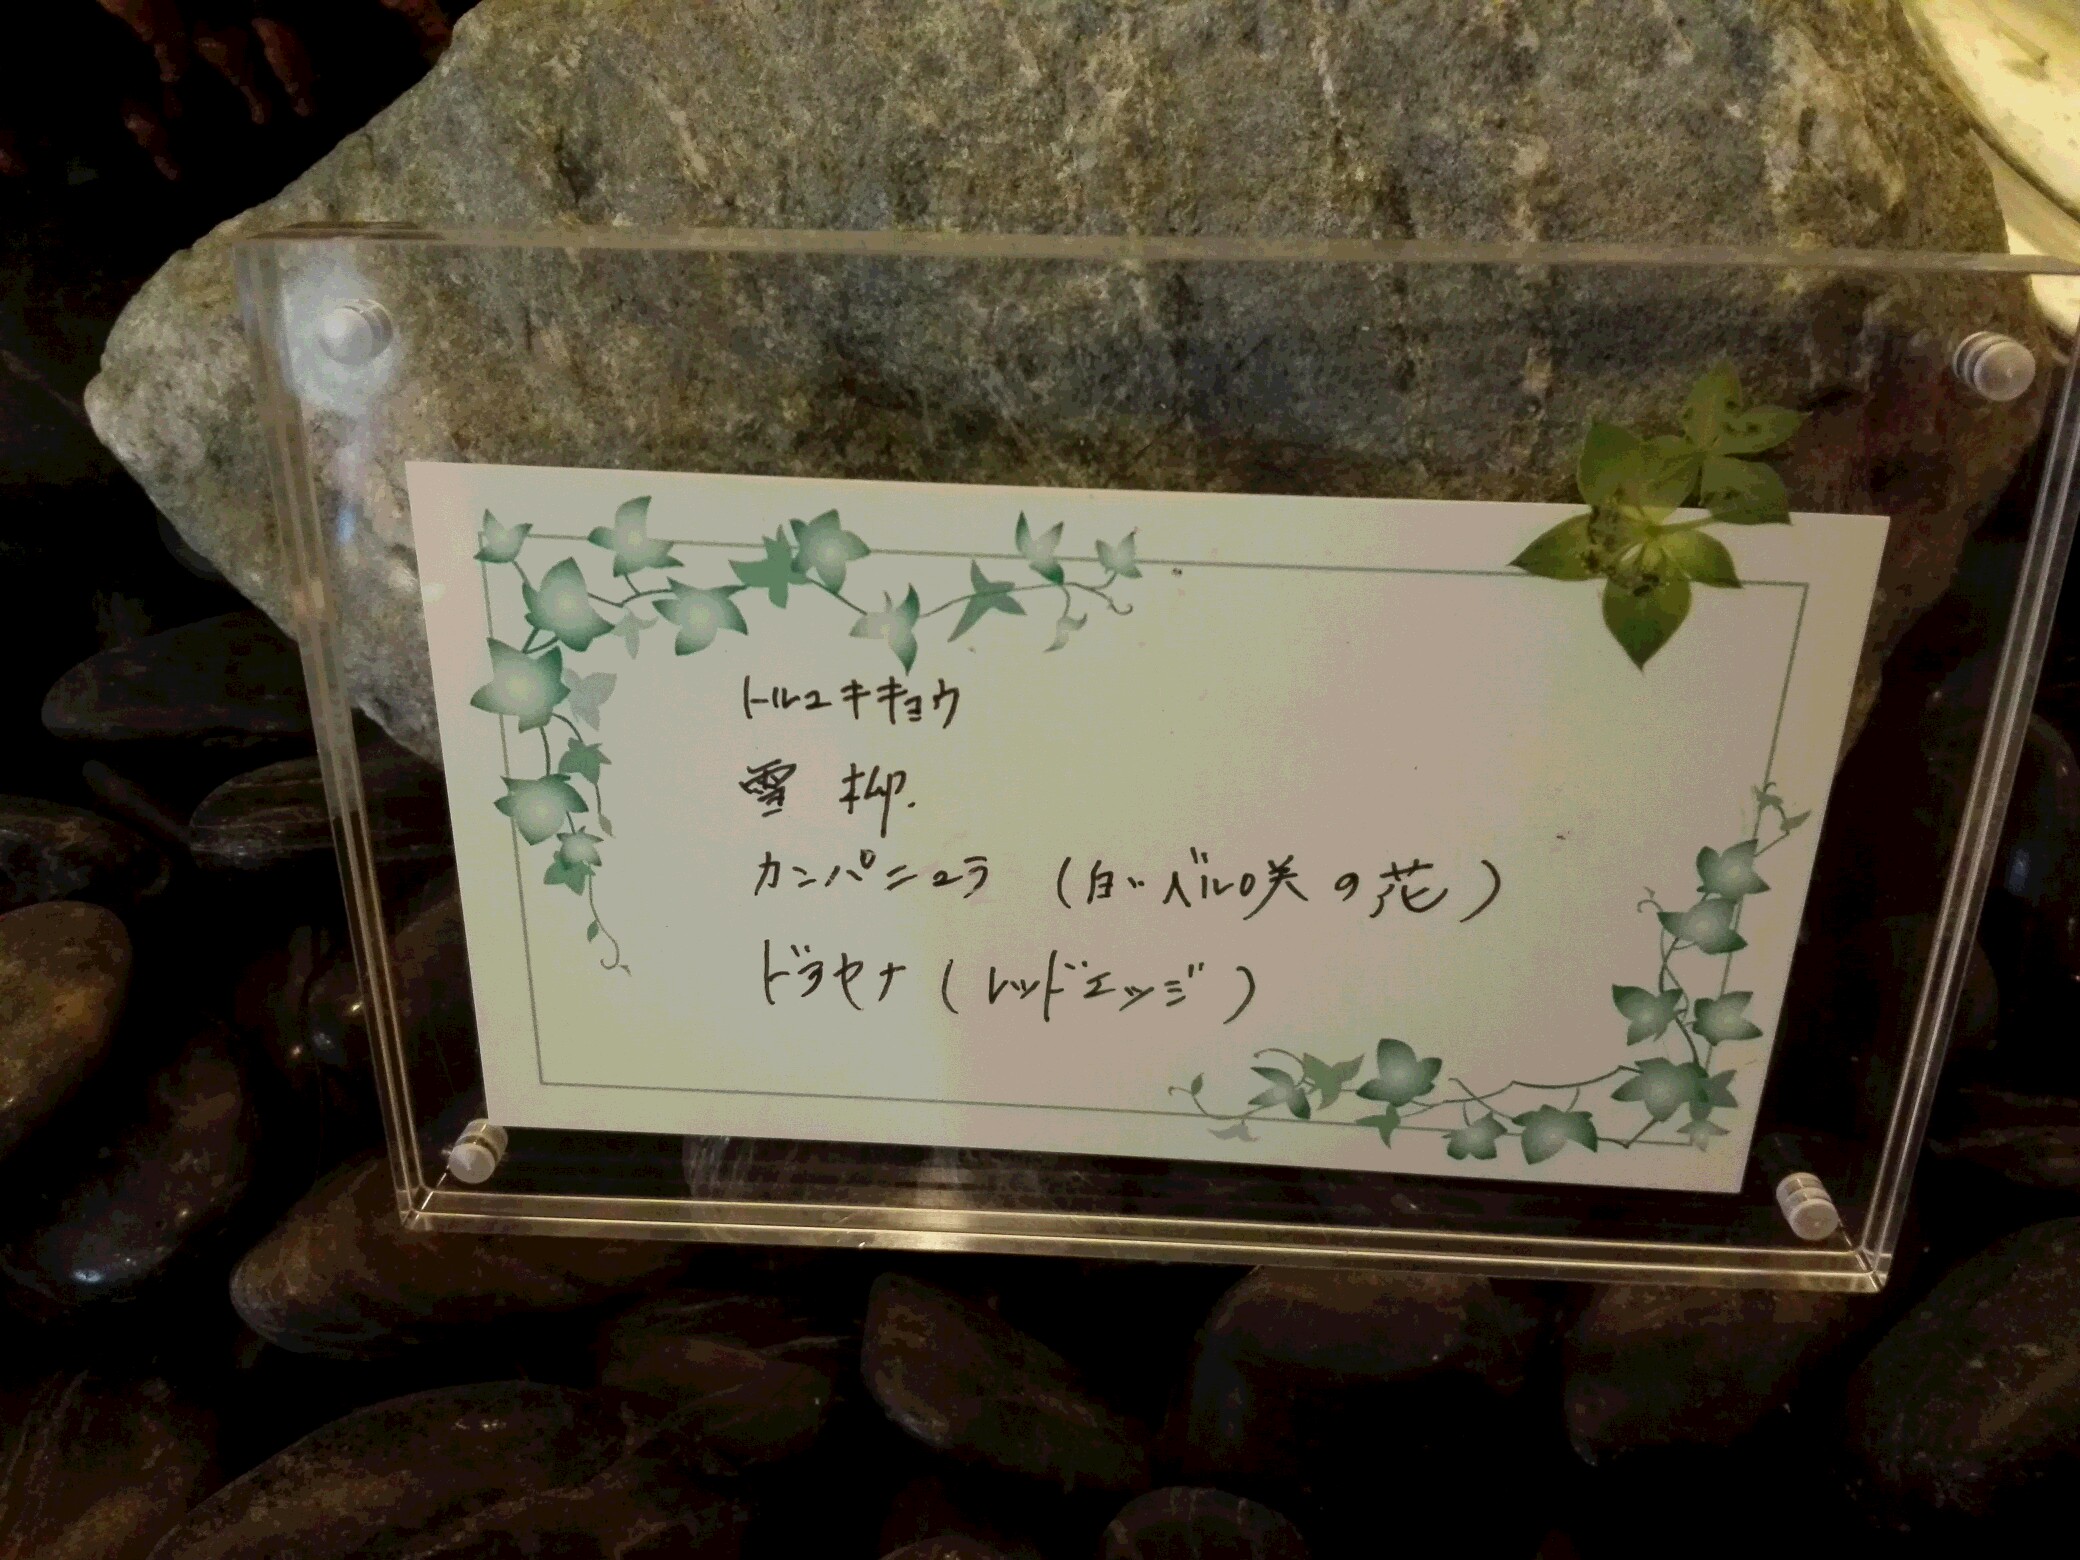 トルコキキョウ
雪柳.
カンパニュラ (白いベル咲の花)
ドラセナ (レッドエッジ)